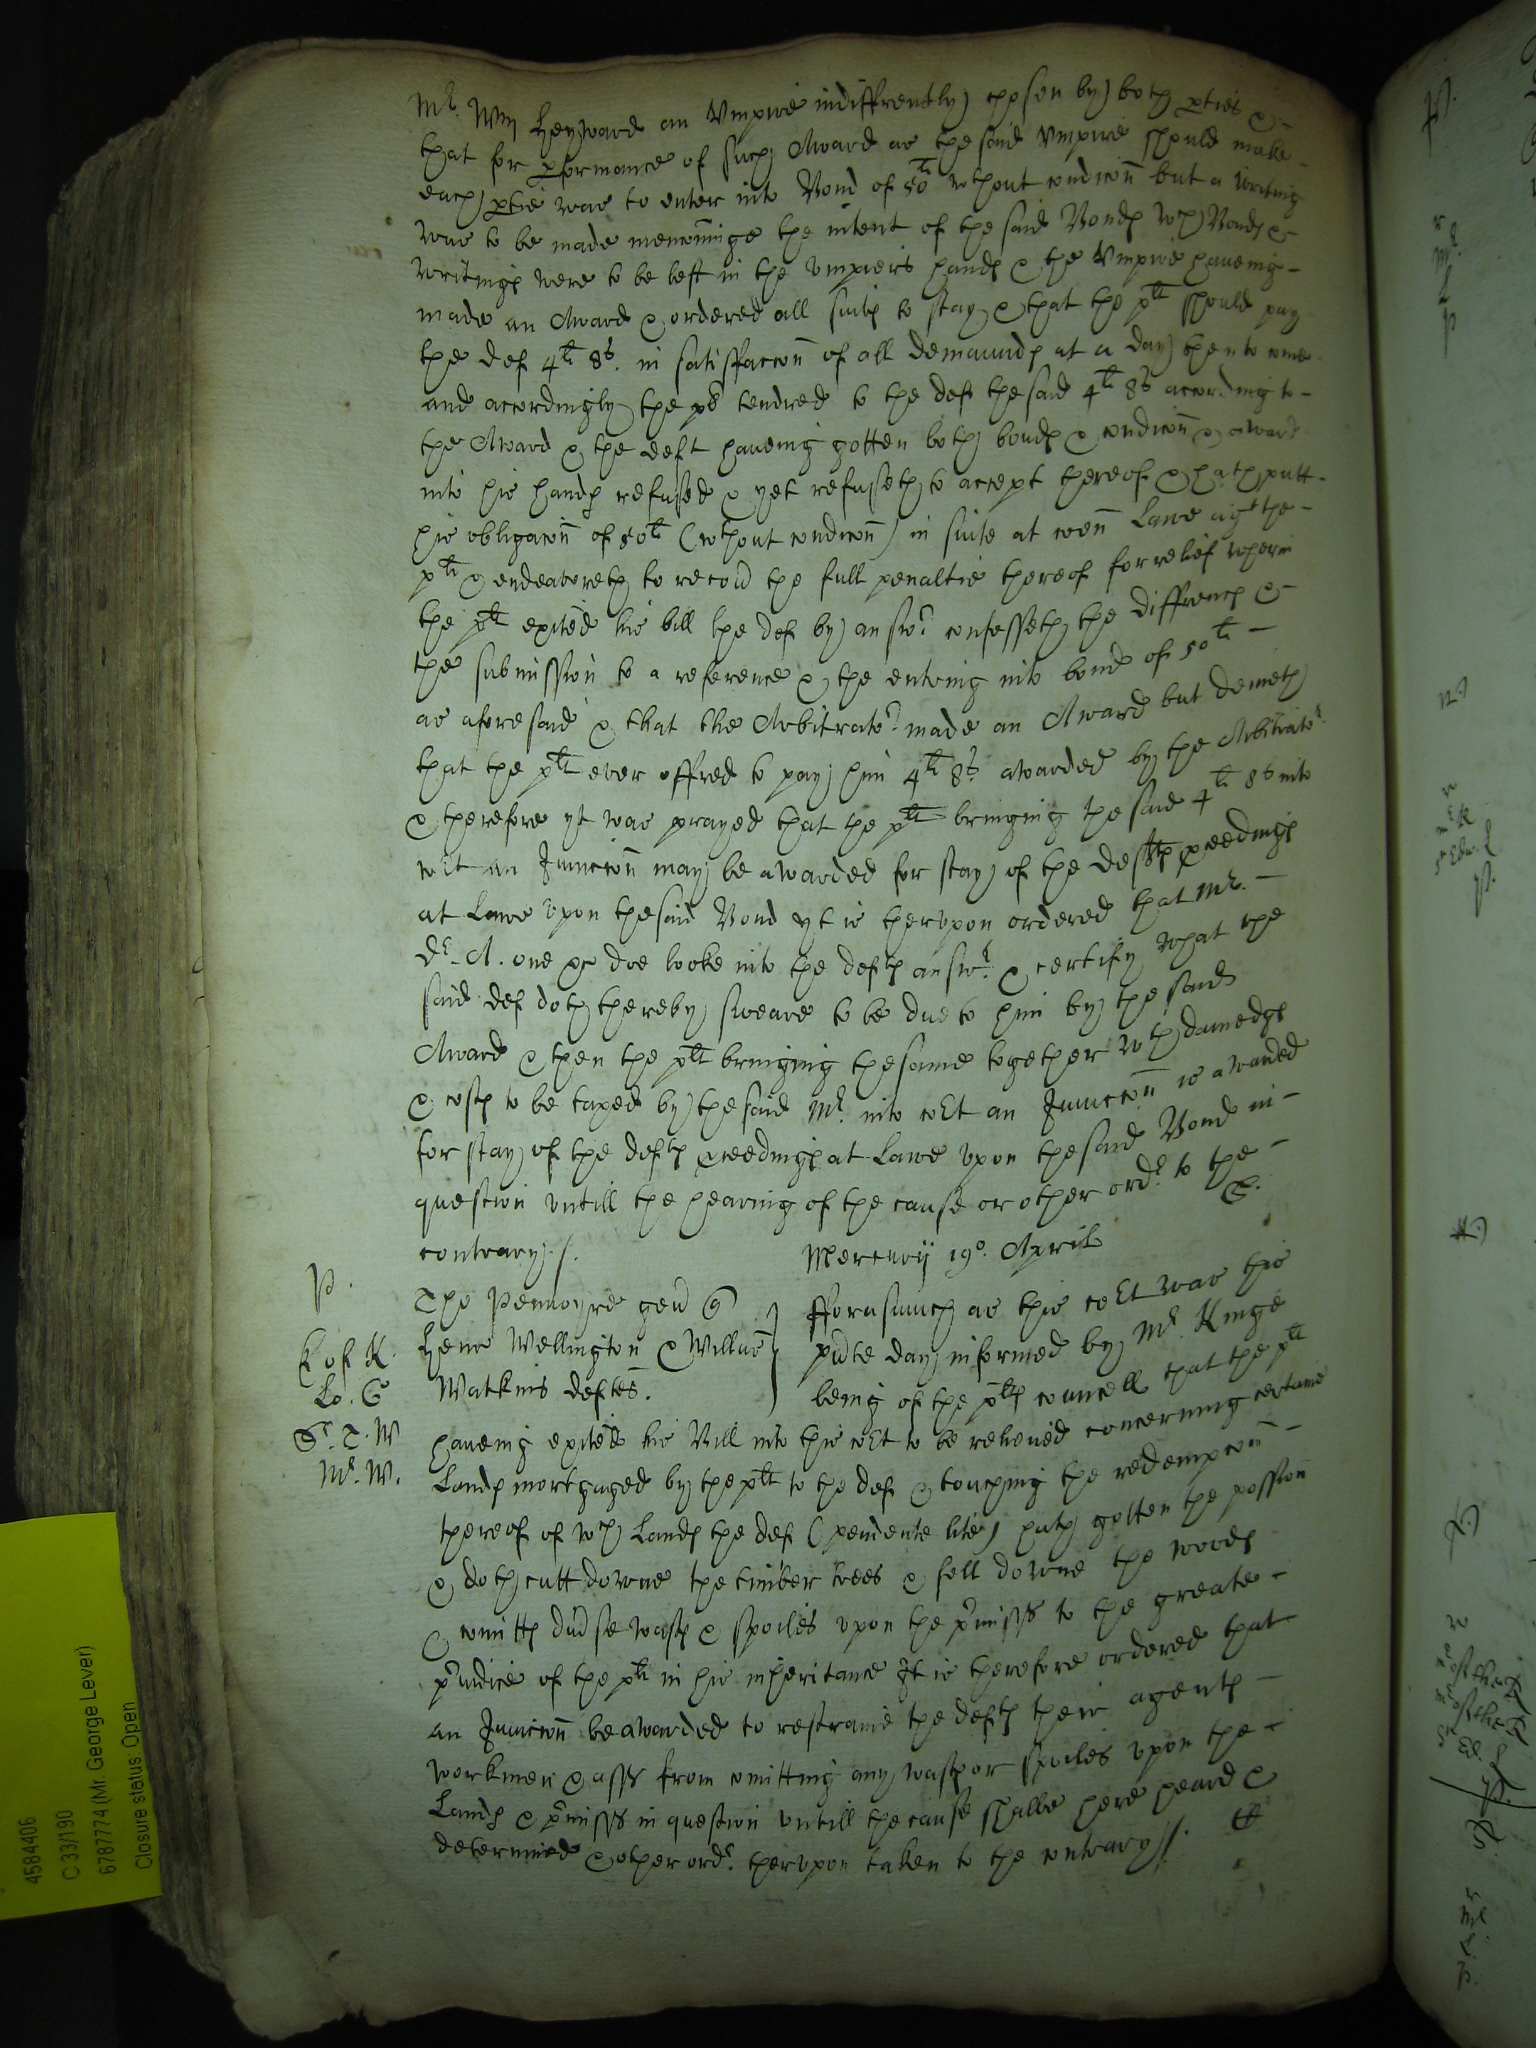 Mr. Wm Heyward an Umpire indiffrently chosen by both pties &
that for pformance of such Award as the said Umpire should make
each ptie was to enter into Bond of 50li wthout condicon but a writing
was to be made menconinge the intent of the said Bonds wch Bonds &
writings were to be left in the umpiers hands & the Umpire haveing
made an Award & ordered all suits to stay & that the plt should pay
the def 4li 8s. in satisfaccon of all demaunds at a day then to come
and accordingly the plt tendred to the def the said 4li 8s according to
the Award & the deft haveing gotten both bonds & condicon & award
into his hands refused & yet refuseth to accept thereof & hath putt
his obligacon of 50li (wthout condicon) in suite at coen Lawe agt the
plt & endeavoreth to recov the full penaltie thereof for relief wherin
the plt exited his bill the def by answr confesseth the diffrences &
the submission to a reference & the entring into bond of 50li
as aforesaid & that the Arbitrator made an Award but denieth
that the plt ever offred to pay him 4li 8s awarded by the Arbitrator
& therefore yt was prayed that the plt bringing the said 4li 8s into
cort an Iniunccon may be awarded for stay of the defts pceedings
at Lawe upon the said Bond yt is therupon ordered that Mr.
Dr. A. one &c doe looke into the defts answr & certify what the
said def doth thereby sweare to be due to him by the said
Award & then the plt bringing the same together wth damedgs
& costs to be taxed by the said Mr. into cort an Iniunccon is awarded
for stay of the defts pceedings at Lawe upon the said Bond in
question untill the hearing of the cause or other ordr to the
contrary./.
Mercurij 19o. Aprilis
P.
Tho Pennoyre gen q
Henr Wellington & Willm
Watkins deftes.
L of K.
Lo. C
Sr. T. W
Mr. W.
fforasmuch as this cort was this
pnte day informed by Mr. Kinge
being of the plts councell that the plt
haveing exited his Bill into this cort to be releived concerning certaine
Lands mortgaged by the plt to the def & touching the redempcon
thereof of wch Lands the def (pendente lite) hath gotten the possion
& doth cutt downe the timber trees & fell downe the woods
& comitts divse wasts & spoiles upon the prmisss to the greate
prudice of the plt in his inheritance It is therefore ordered that
an Iniunccon be awarded to restraine the defts their agents
workmen & asss from comitting any wasts or spoiles upon the
Lands & prmisss in question untill the cause shalbe here heard &
determined & other ordr. therupon taken to the contrary/.
4584406
C 33/190
6787774 (Mr. George Lever)
Closure status: Open